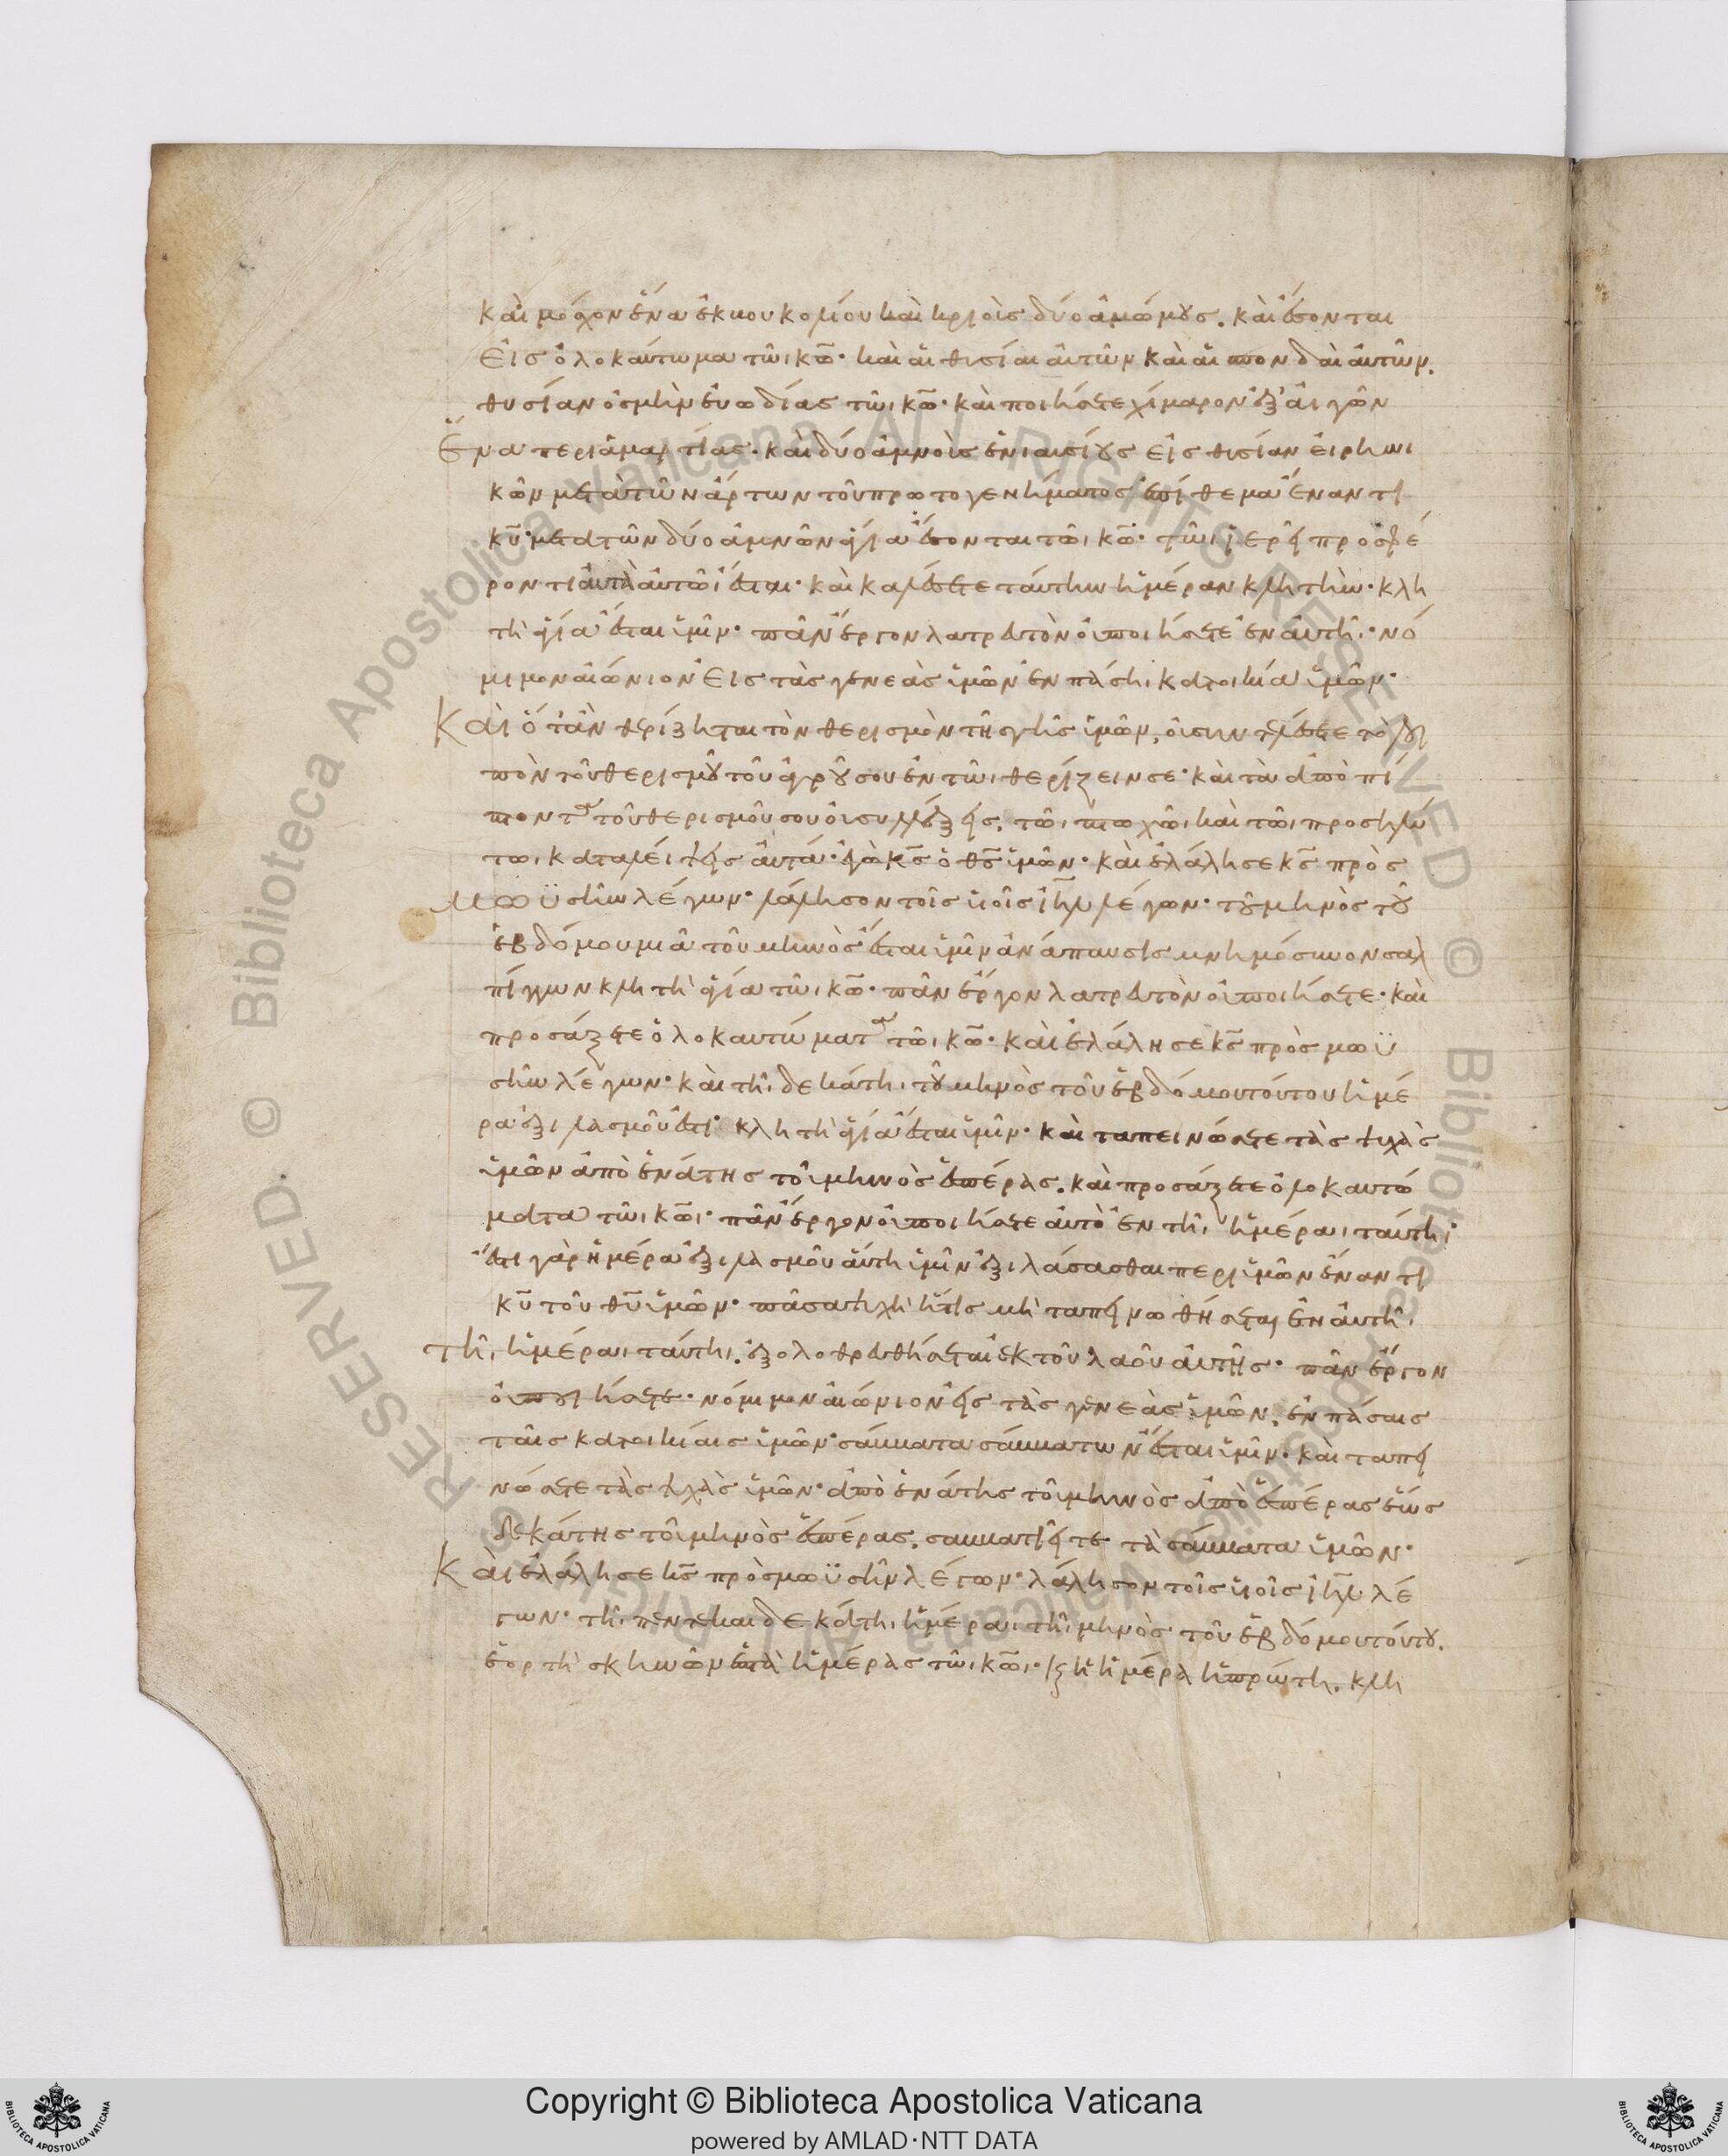 καὶ μόσχον ἕνα ἐκ βουκολίου καὶ κριοὺς δύο ἀμώμους. καὶ ἔσονται
εἰς ὁλοκαύτωμα τῶι κω̅· καὶ αἱ θυσίαι αὐτῶν καὶ αἱ σπονδαὶ αὐτῶν.
θυσίαν ὀσμὴν εὐωδίας τῶι κω̅· καὶ ποιήσετε χίμαρον ἐξ αἰγῶν
ἕνα περὶ ἁμαρτίας· καὶ δύο ἀμνοὺς ἐνιαυσίους εἰς θυσίαν εἰρηνι
κῶν μετὰ τῶν ἄρτων τοῦ πρωτογενήματος ἐπίθεμα ἔναντι
κυ̅· μετὰ τῶν δύο ἀμνῶν ἅγια ἔσονται τῶι κω̅· τῶι ἱερεῖ προσφέ
ροντι αὐτὰ αὐτῶι ἔσται· καὶ καλέσετε ταύτην ἡμέραν κλητήν· κλη
τὴ ἁγία ἔσται ὑμῖν· πᾶν ἔργον λατρευτὸν οὐ ποιήσετε ἐν αὐτῆι· νό
μιμον αἰώνιον εἰς τὰς γενεὰς ὑμῶν ἐν πάσηι κατοικία ὑμῶν·
Καὶ ὅταν θερίζηται τὸν θερισμὸν τῆς γῆς ὑμῶν, οὐ συντελέσετε τὸ λοι
πὸν τοῦ θερισμοῦ τοῦ ἀγροῦ σου ἐν τῶι θερίζειν σε· καὶ τὰ ἀποπί
πτοντα τοῦ θερισμοῦ σου οὐ συλλέξεις. τῶι πτωχῶι καὶ τῶι προσηλύ
τωι καταλείψεις αὐτά· ἐγὼ κς̅ ὁ θς̅ ὑμῶν· καὶ ἐλάλησε κς̅ πρὸς
μωϋσῆν λέγων· λάλησον τοῖς υἱοῖς ιη̅λ λέγων· τοῦ μηνὸς τοῦ
ἑβδόμου μιᾶ τοῦ μηνὸς ἔσται ὑμῖν ἀνάπαυσις μνημόσυνον σαλ
πίγγων κλητὴ ἁγία τῶι κω̅· πᾶν ἔργον λατρευτὸν οὐ ποιήσετε· καὶ
προσάξετε ὁλοκαυτώματα τῶι κω̅· καὶ ἐλάλησε κς̅ πρὸς μωϋ
σῆν λέγων· καὶ τῆι δεκάτηι τοῦ μηνὸς τοῦ ἑβδόμου τούτου ἡμέ
ρα ἐξιλασμοῦ ἐστι· κλητὴ ἁγία ἔσται ὑμῖν· καὶ ταπεινώσετε τὰς ψυχὰς
ὑμῶν ἀπὸ ἐνάτης τοῦ μηνὸς ἑσπέρας. καὶ προσάξετε ὁλοκαυτώ
ματα τῶι κω̅ι· πᾶν ἔργον οὐ ποιήσετε αὐτὸ ἐν τῆι ἡμέραι ταύτη·
ἔστι γὰρ ἡμέρα ἐξιλασμοῦ αὕτη ὑμῖν ἐξιλάσασθαι περὶ ὑμῶν ἔναντι
κυ̅ τοῦ θυ̅ ὑμῶν· πᾶσα ψυχὴ ἥτις μὴ ταπεινωθήσεται ἐν αὐτῆι
τῆι ἡμέραι ταύτηι. ἐξολοθρευθήσεται ἐκ τοῦ λαοῦ αὐτῆς· πᾶν ἔργον
οὐ ποιήσετε· νόμιμον αἰώνιον εἰς τὰς γενεὰς ὑμῶν. ἐν πάσαις
ταῖς κατοικίαις ὑμῶν· σάββατα σαββάτων ἔσται ὑμῖν· καὶ ταπει
νώσετε τὰς ψυχὰς ὑμῶν· ἀπὸ ἐνάτης τοῦ μηνὸς ἀπὸ ἑσπέρας ἕως
δεκάτης τοῦ μηνὸς ἑσπέρας. σαββατιεῖτε τὰ σάββατα ὑμῶν·
Καὶ ἐλάλησε κς̅ πρὸς μωϋσῆν λέγων· λάλησον τοῖς υἱοῖς ιη̅λ λέ
γων· τῆι πεντεκαιδεκάτηι ἡμέραι τοῦ μηνὸς τοῦ ἑβδόμου τούτου.
ἑορτὴ σκηνῶν ἑπτὰ ἡμέρας τῶι κω̅ι· καὶ ἡ ἡμέρα ἡ πρώτη. κλη
Copyright © Biblioteca Apostolica Vaticana
powered by AMLAD·NTT DATA